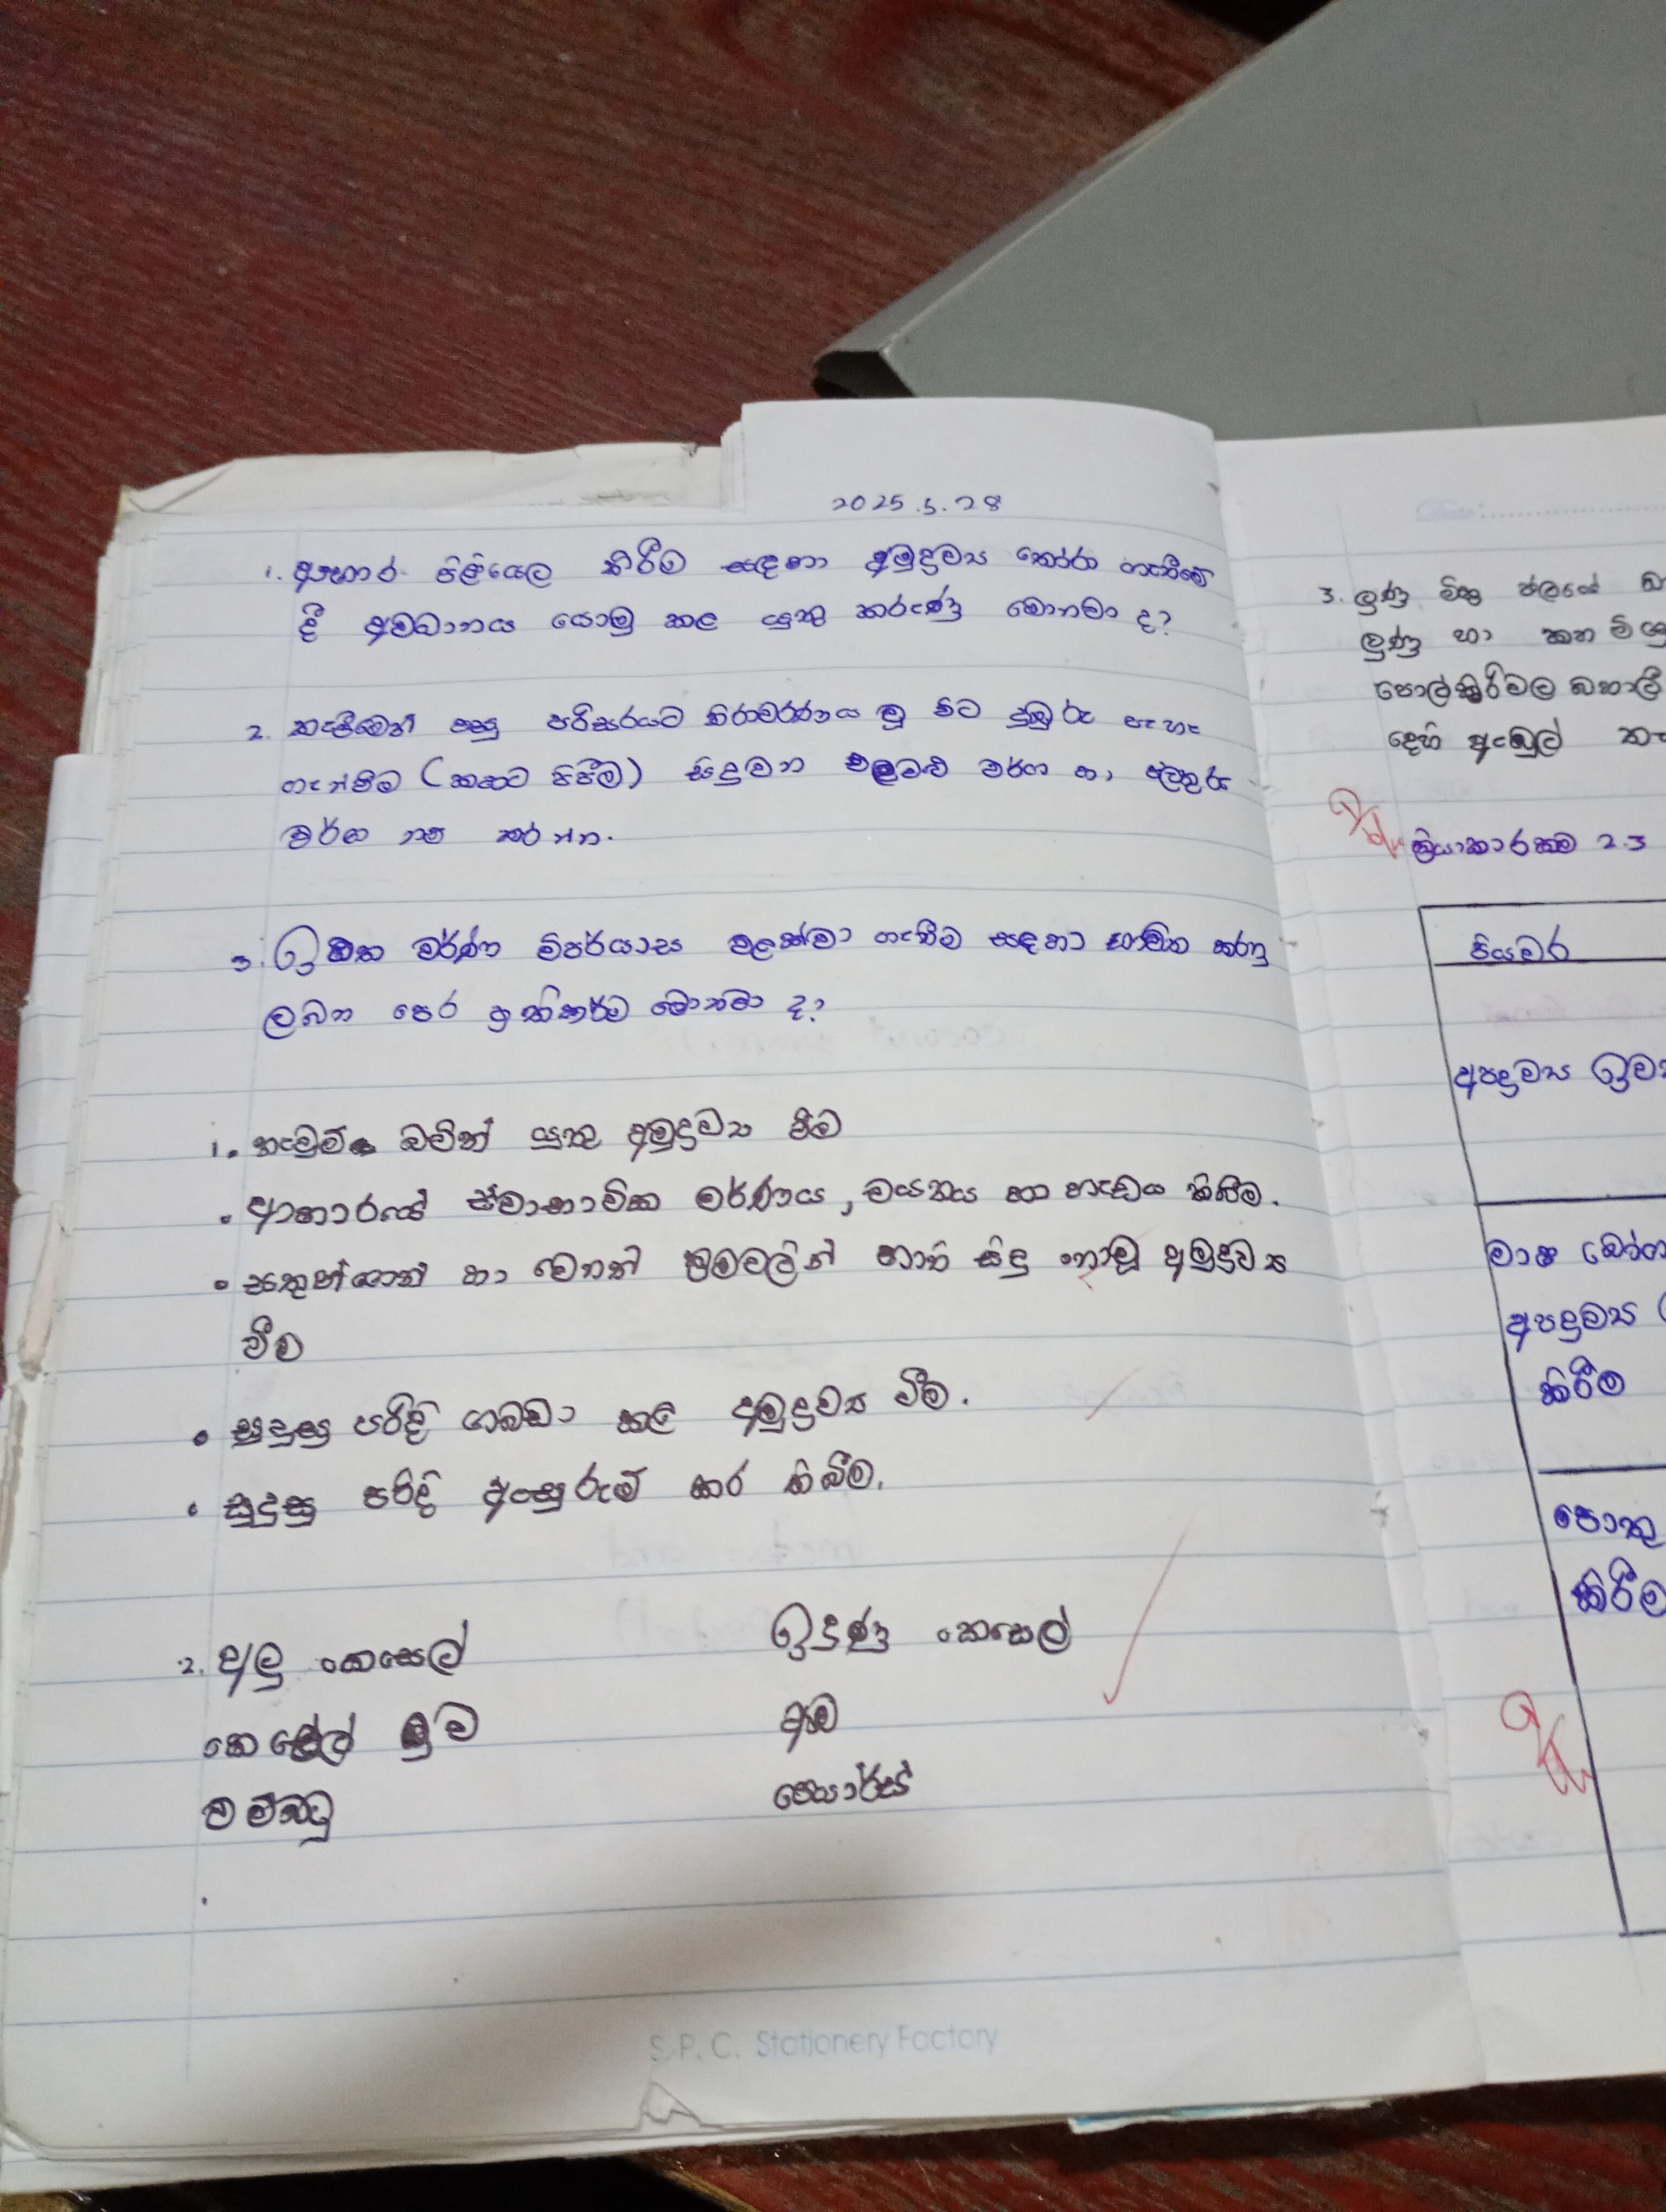 2025.5.28
1. ආහාර පිළියෙල කිරීම සඳහා අමුද්‍රව්‍ය තෝරා ගැනීමේ
දී අවධානය යොමු කළ යුතු කරුණු මොනවා ද?
2. කැපීමෙන් පසු පරිසරයට නිරාවරණය වූ විට දුඹුරු පැහැ
ගැන්වීම (කහට පිපීම) සිදුවන එළවළු වර්ග හා පලතුරු
වර්ග නම් කරන්න.
3. ඉහත වර්ණ විපර්යාස වළක්වා ගැනීම සඳහා භාවිත කරනු
ලබන පෙර ප්‍රතිකර්ම මොනවා ද?
1. නැවුම් බවින් යුතු අමුද්‍රව්‍ය වීම
• ආහාරයේ ස්වාභාවික වර්ණය, වයනය හා හැඩය තිබීම.
• සතුන්ගෙන් හා වෙනත් ක්‍රමවලින් හානි සිදු නොවූ අමුද්‍රව්‍ය
වීම
• සුදුසු පරිදි ගබඩා කළ අමුද්‍රව්‍ය වීම.
• සුදුසු පරිදි ඇසුරුම් කර තිබීම.
2. අලු කෙසෙල් ඉදුණු කෙසෙල්
කෙසෙල් මුව ඇට
වම්බටු පෙයාර්ස්
3. ලුණු මිශ්‍ර ජලයේ
ලුණු හා කහ මිශ්‍ර
පොල්කිරිවල බහාලී
දෙහි ඇඹුල්
ක්‍රියාකාරකම 2.3
පියවර
අපද්‍රව්‍ය ඉවත්
මාෂ බෝග
අපද්‍රව්‍ය
කිරීම
පොතු
කිරීම
S.P.C. Stationery Factory